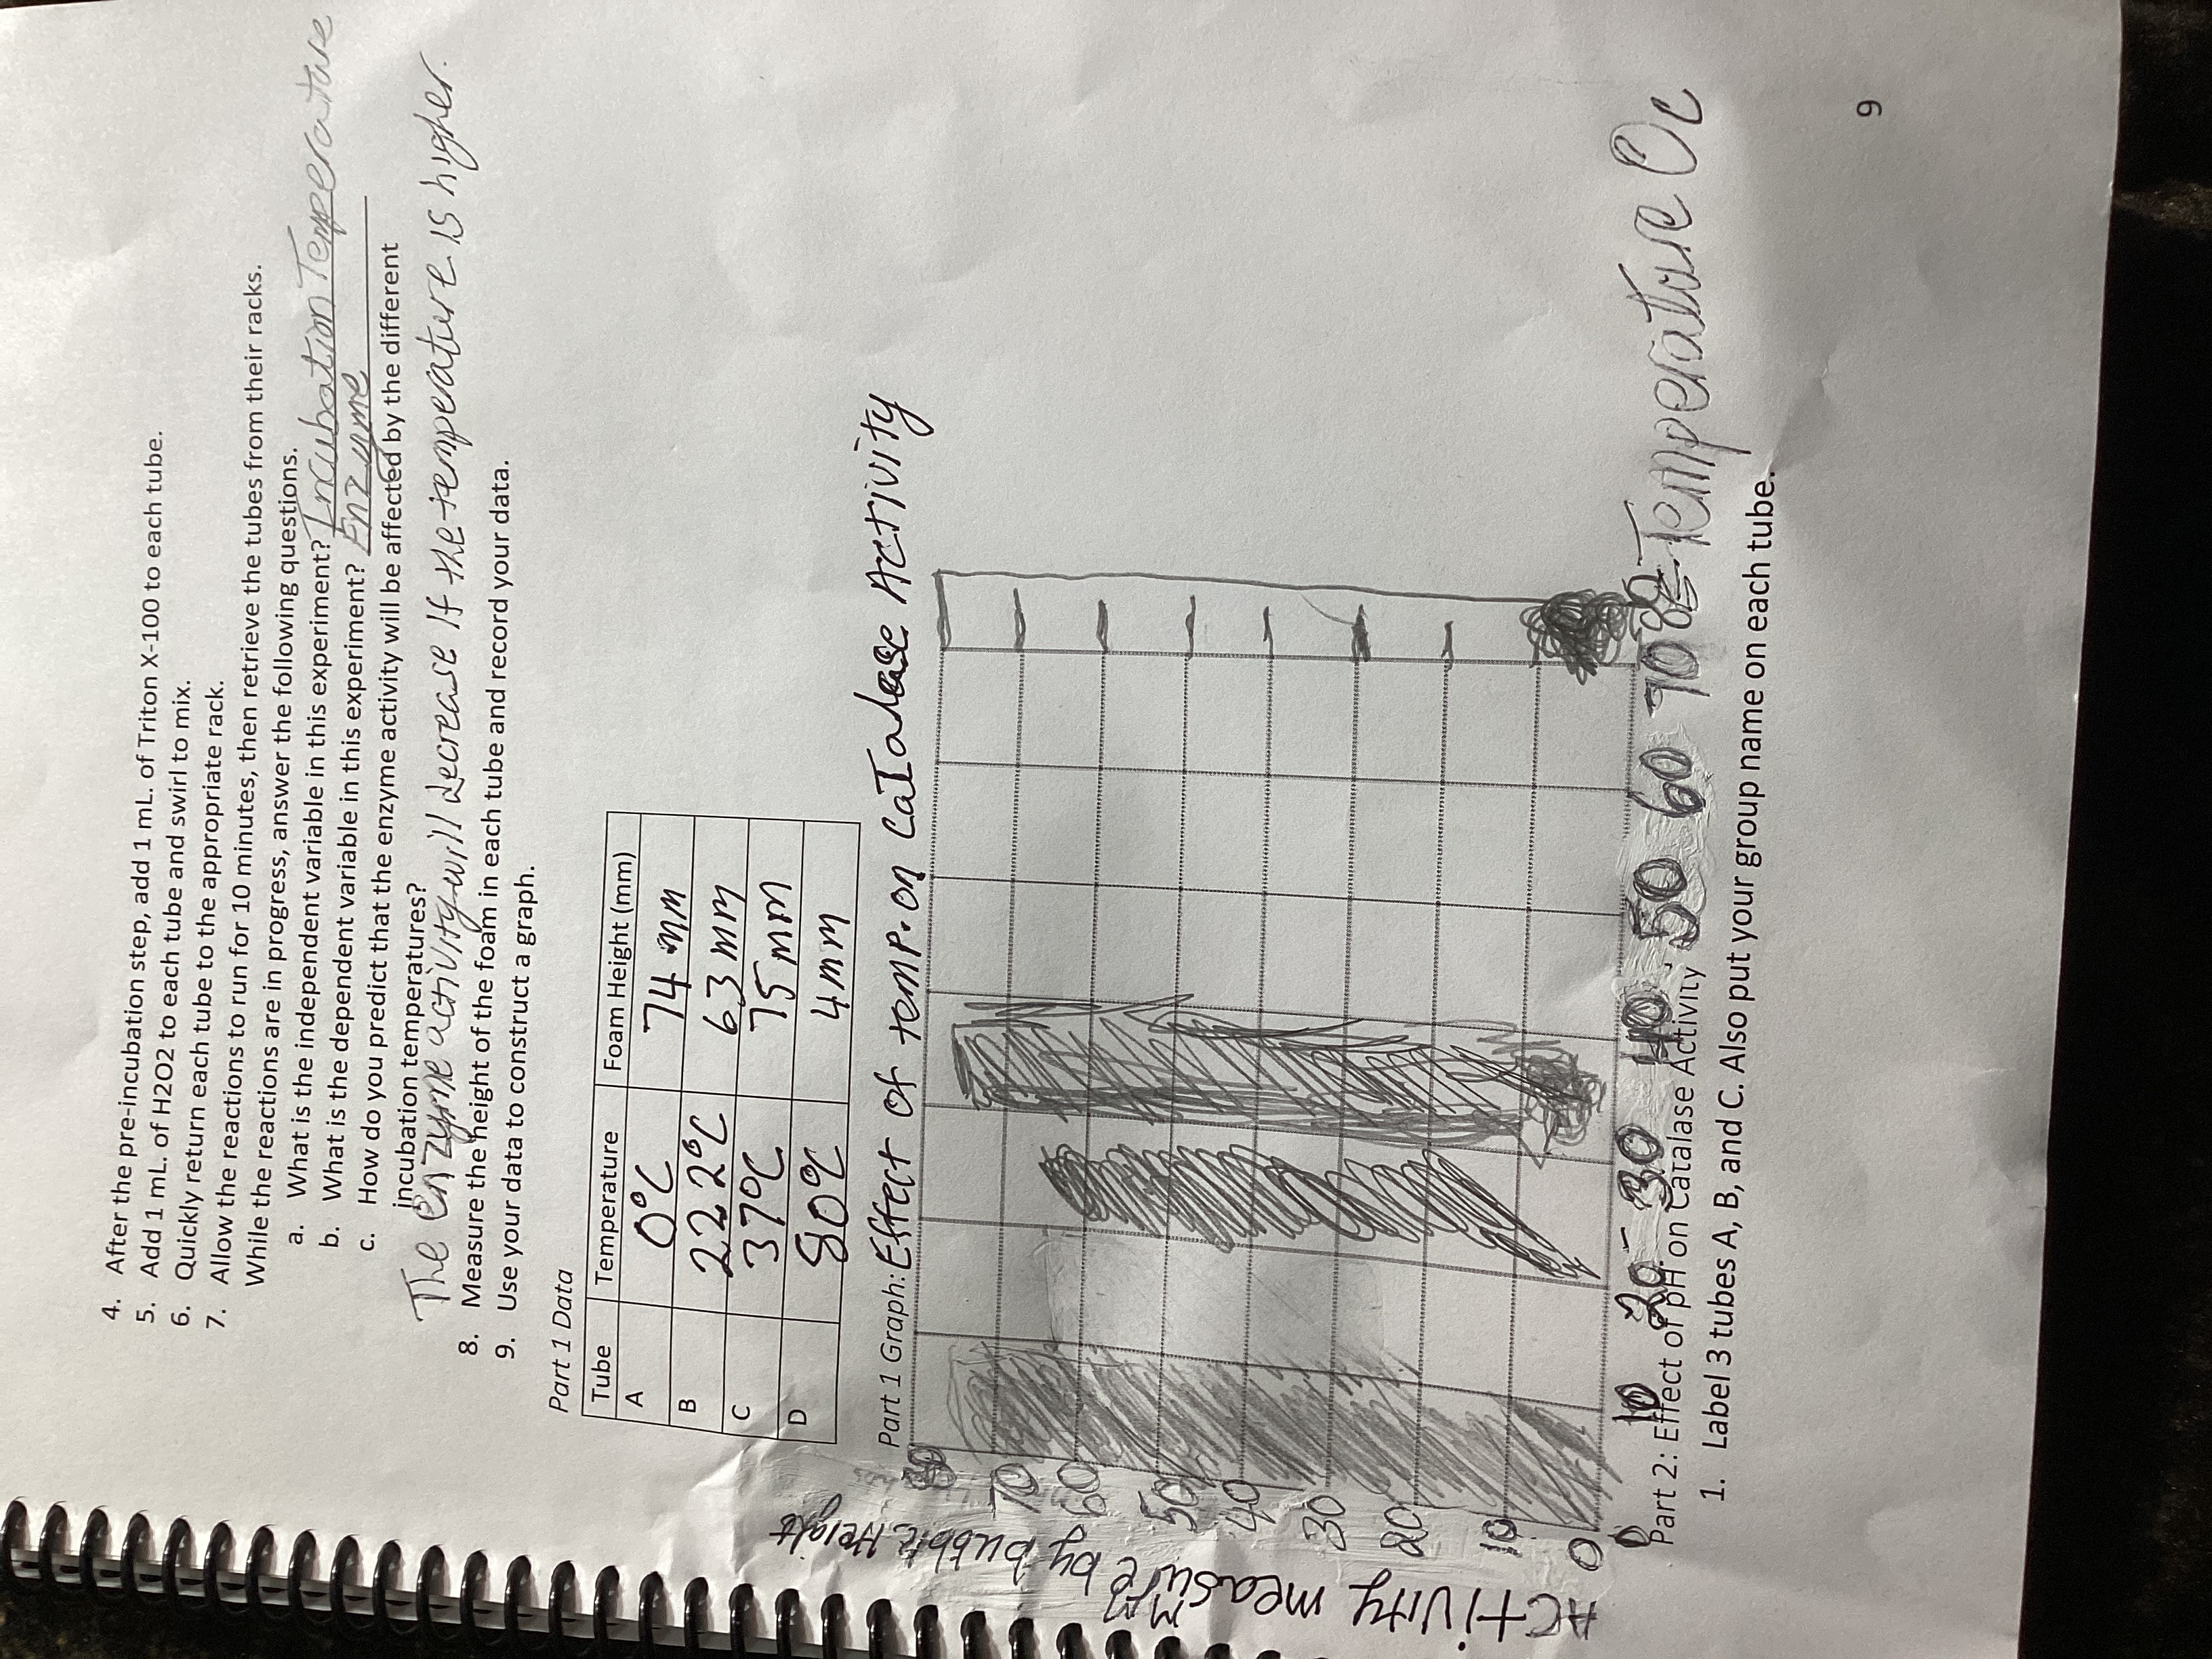 4. After the pre-incubation step, add 1 mL. of Triton X-100 to each tube.
5. Add 1 mL. of H2O2 to each tube and swirl to mix.
6. Quickly return each tube to the appropriate rack.
7. Allow the reactions to run for 10 minutes, then retrieve the tubes from their racks.
While the reactions are in progress, answer the following questions.
a. What is the independent variable in this experiment? Incubation Temperature
b. What is the dependent variable in this experiment? Enzyme
c. How do you predict that the enzyme activity will be affected by the different
incubation temperatures?
The enzyme activity will decrease If the temperature is higher.
8. Measure the height of the foam in each tube and record your data.
9. Use your data to construct a graph.
Part 1 Data
Tube Temperature Foam Height (mm)
A 0°C 74 mm
B 22.2°C 63 mm
C 37°C 75 mm
D 80°C 4 mm
Part 1 Graph: Effect of temp. on CaTalase Activity
ACTiVITy measure by bubble Height
MM
80
70
60
50
40
30
20
10
0
0 10 20 30 40 50 60 70 80 Temperature Oc
Part 2: Effect of pH on Catalase Activity
1. Label 3 tubes A, B, and C. Also put your group name on each tube.
9